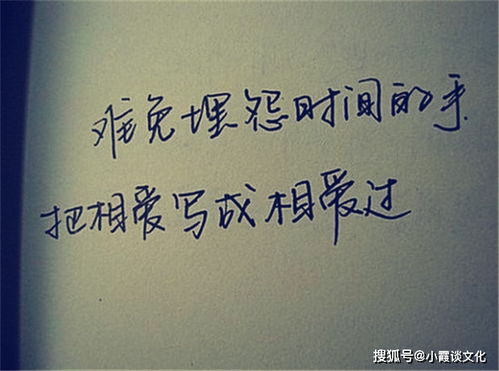 难免埋怨时间的手
把相爱写成相爱过
搜狐号@小霞谈文化